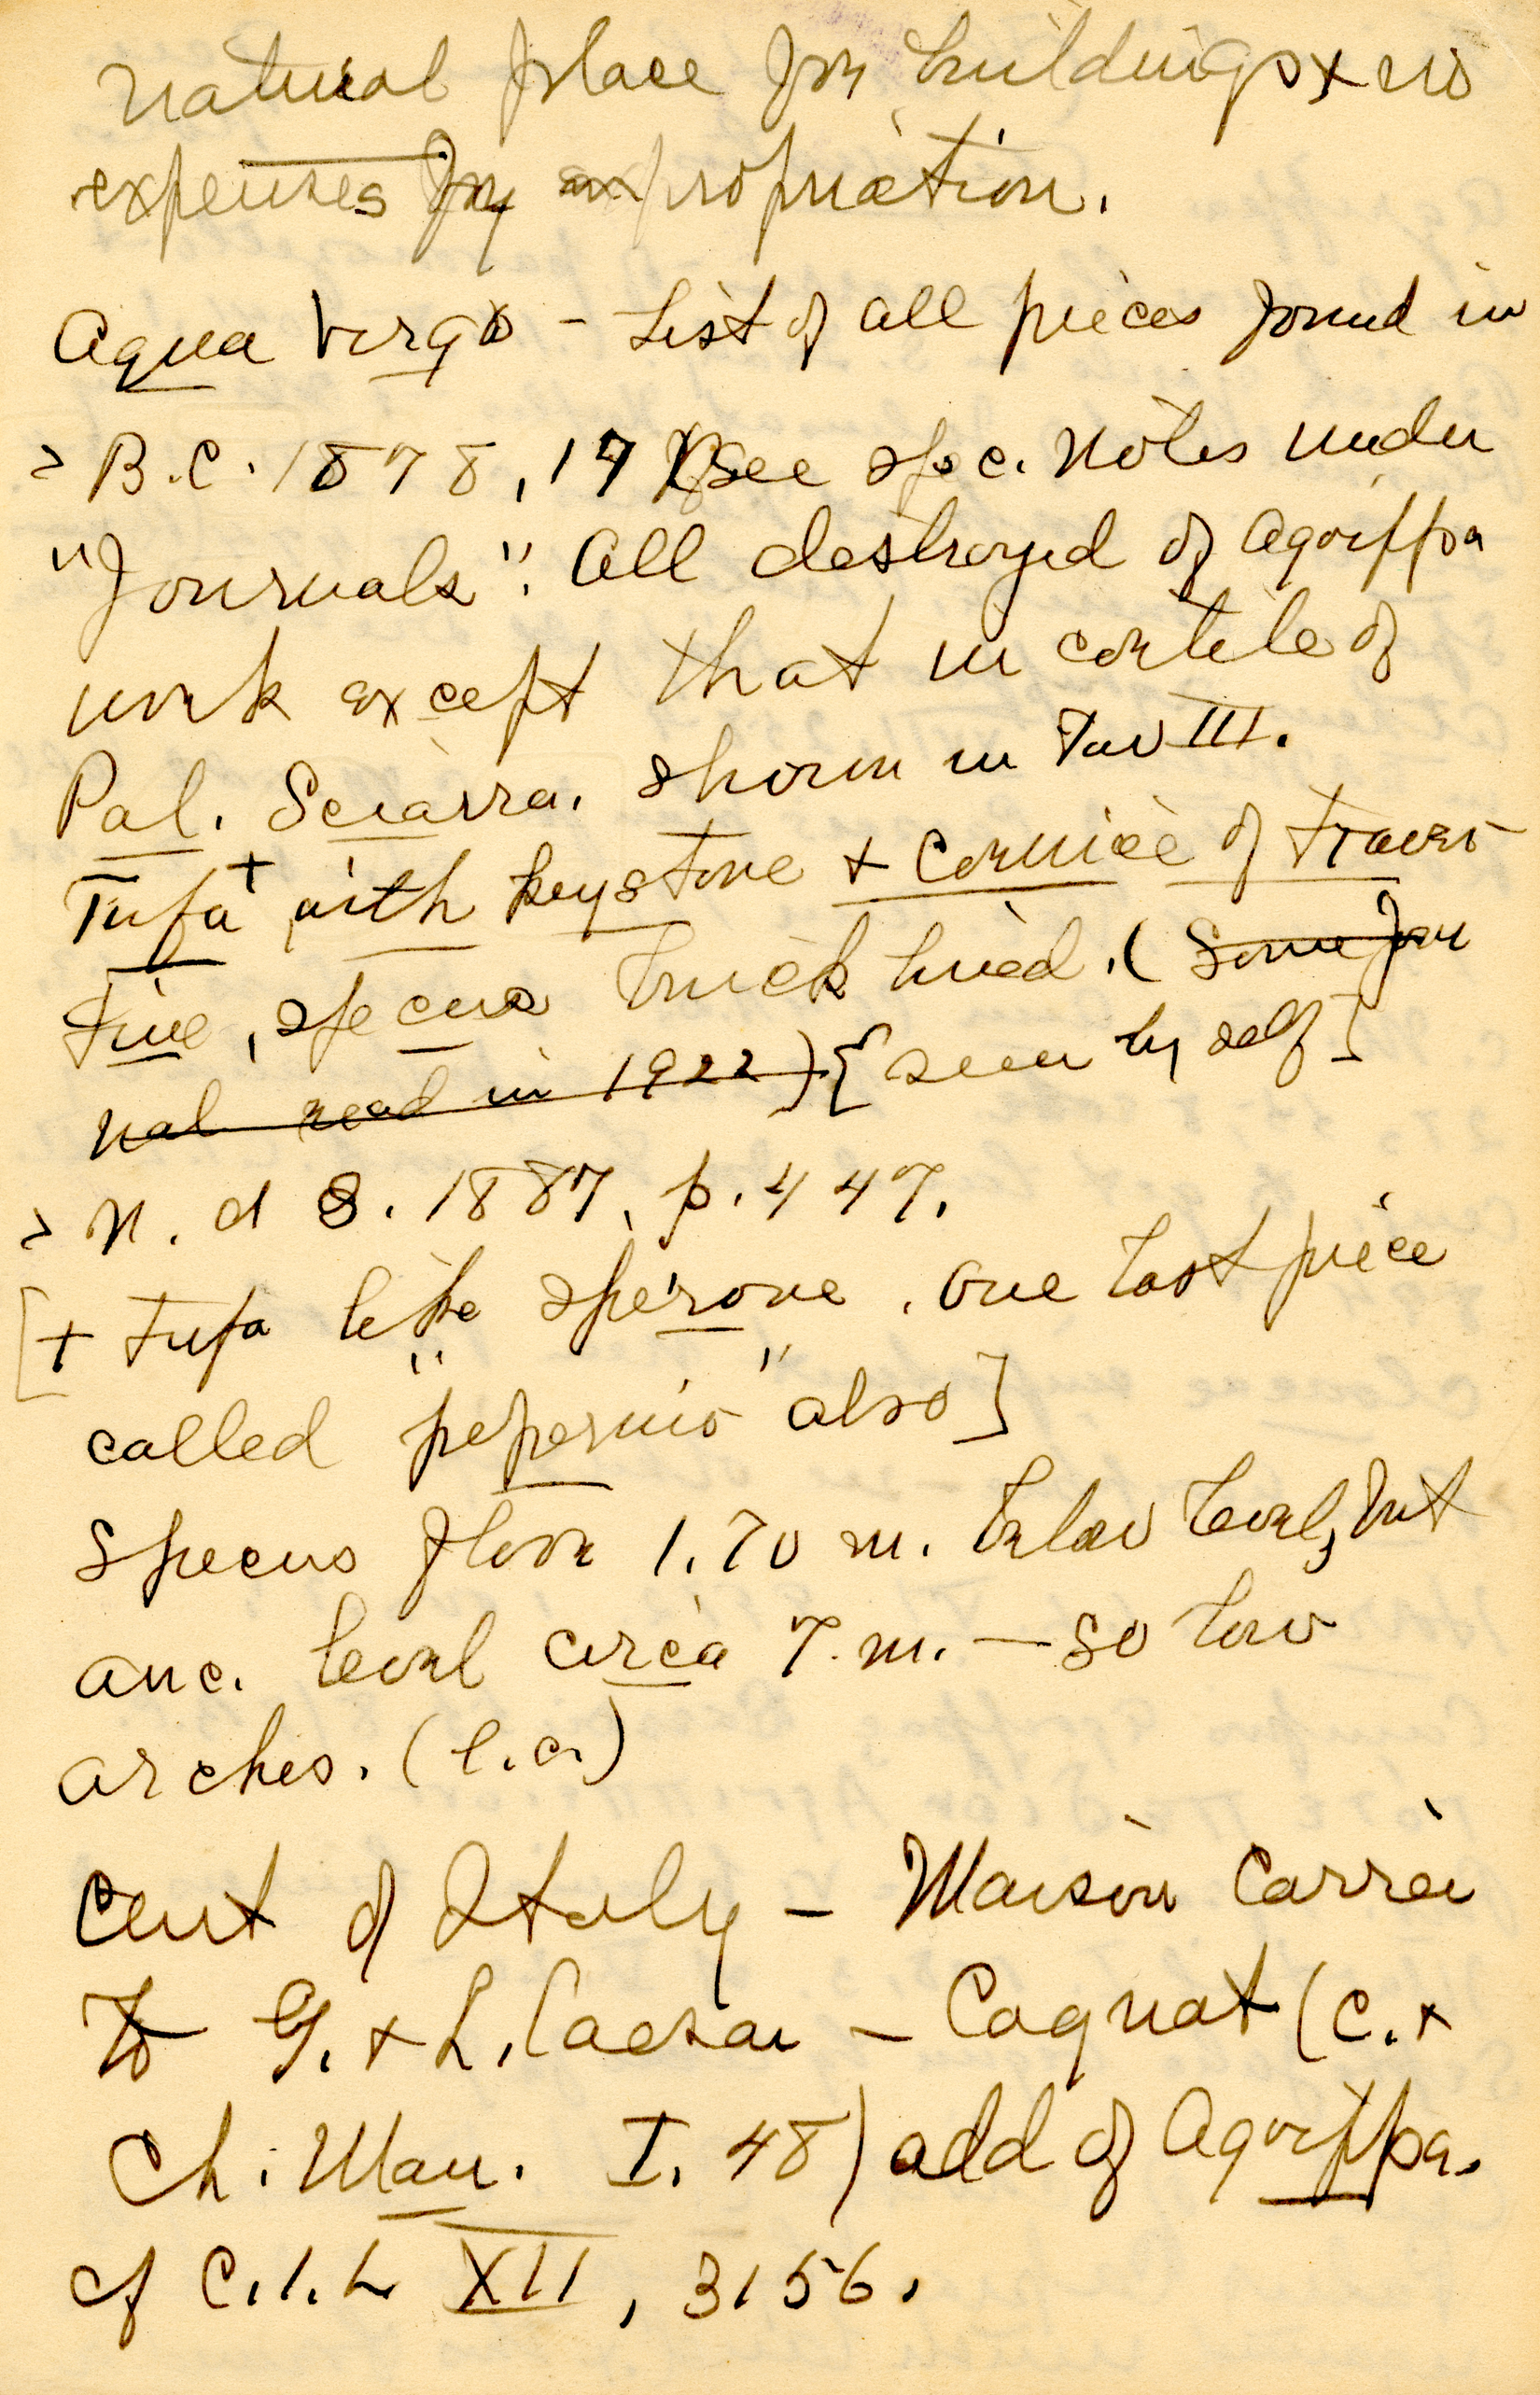 natural place for buildings + no
expenses for expropriation.
Aqua Virgo - List of all pieces found in
> B.C. 1878, 17 See spec. notes under
"Journals". All destroyed of Agrippa
work except that in cortile of
Pal. Sciarra. shown in Tav III.
Tufa + with keystone + cornice of traver-
tine, specus brick lined. (Some jour
nal read in 1922) [seen by self]
> N. d S. 1887, p. 447.
[+ tufa like sperone. One last piece
called "peperino" also]
Specus floor 1.70 m. below level, but
anc. level circa 7. m. — so low
arches. (l.c.)
Cent of Italy - Maison Carrée
To G. + L. Caesar - Cagnat (C. +
Ch. Man. I. 48) add of Agrippa.
cf C.I.L XII, 3156.